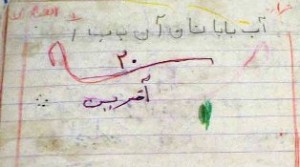 آب بابا نان آن با
۲۰
آفرین